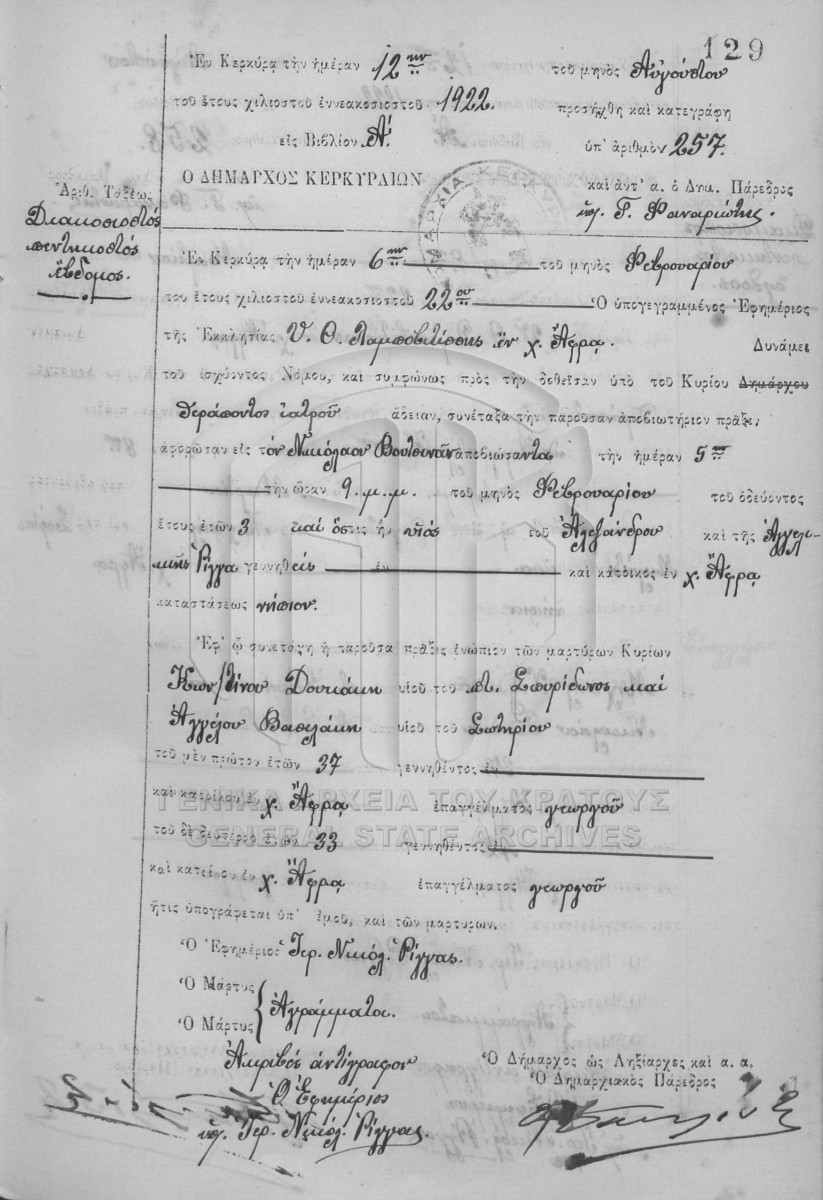 129
Ἐν Κερκύρᾳ τὴν ἡμέραν 12ην τοῦ μηνὸς Αὐγούστου
τοῦ ἔτους χιλιοστοῦ ἐννεακοσιοστοῦ 1922. προσήχθη καὶ κατεγράφη
εἰς Βιβλίον Α΄ ὑπ᾽ ἀριθμὸν 257.
Ὁ ΔΗΜΑΡΧΟΣ ΚΕΡΚΥΡΑΙΩΝ καὶ ἀντ᾽ α. ὁ Δημ. Πάρεδρος
ὑπ. Γ. Φαναριώτης.
Ἀριθ. Τάξεως
Διακοσιοστός
πεντηκοστός
ἕβδομος.
Ἐν Κερκύρᾳ τὴν ἡμέραν 6ην τοῦ μηνὸς Φεβρουαρίου
τοῦ ἔτους χιλιοστοῦ ἐννεακοσιοστοῦ 22ου Ὁ ὑπογεγραμμένος Ἐφημέριος
τῆς Ἐκκλησίας Υ. Θ. Λαμποβιτίσσης ἐν χ. Ἄφρᾳ. Δυνάμει
τοῦ ἰσχύοντος Νόμου, καὶ συμφώνως πρὸς τὴν δοθεῖσαν ὑπὸ τοῦ Κυρίου Δημάρχου
θεράποντος ἰατροῦ ἄδειαν, συνέταξα τὴν παροῦσαν ἀποβιωτήριον πρᾶξιν,
ἀφορῶσαν εἰς τὸν Νικόλαον Βουτσινᾶν ἀποβιώσαντα τὴν ἡμέραν 5ην
τὴν ὥραν 9. μ.μ. τοῦ μηνὸς Φεβρουαρίου τοῦ ὁδεύοντος
ἔτους ἐτῶν 3 καὶ ὅστις ἦν υἱὸς τοῦ Ἀλεξάνδρου καὶ τῆς Ἀγγελι-
κῆς Ρίγγα γεννηθεὶς ἐν καὶ κάτοικος ἐν χ. Ἄφρᾳ
καταστάσεως νήπιον.
Ἐφ᾽ ᾧ συνετάγη ἡ παροῦσα πρᾶξις ἐνώπιον τῶν μαρτύρων Κυρίων
Κων/τίνου Δουκάκη υἱοῦ τοῦ Σπυρίδωνος καὶ
Ἀγγέλου Βασιλάκη υἱοῦ τοῦ Σωτηρίου
τοῦ μὲν πρώτου ἐτῶν 37 γεννηθέντος ἐν
καὶ κατοίκου ἐν χ. Ἄφρᾳ ἐπαγγέλματος γεωργοῦ
ΓΕΝΙΚΑ ΑΡΧΕΙΑ ΤΟΥ ΚΡΑΤΟΥΣ
τοῦ δὲ δευτέρου ἐτῶν 33 γεννηθέντος ἐν
GENERAL STATE ARCHIVES
καὶ κατοίκου ἐν χ. Ἄφρᾳ ἐπαγγέλματος γεωργοῦ
ἥτις ὑπογράφεται ὑπ᾽ ἐμοῦ, καὶ τῶν μαρτύρων.
Ὁ Ἐφημέριος Ἱερ. Νικόλ. Ρίγγας.
Ὁ Μάρτυς
Ἀγράμματοι.
Ὁ Μάρτυς
Ἀκριβὲς ἀντίγραφον
Ὁ Ἐφημέριος
ὑπ. Ἱερ. Νικόλ. Ρίγγας.
Ὁ Δήμαρχος ὡς Ληξίαρχες καὶ α. α.
Ὁ Δημαρχιακὸς Πάρεδρος